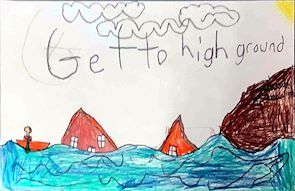 Get to high ground